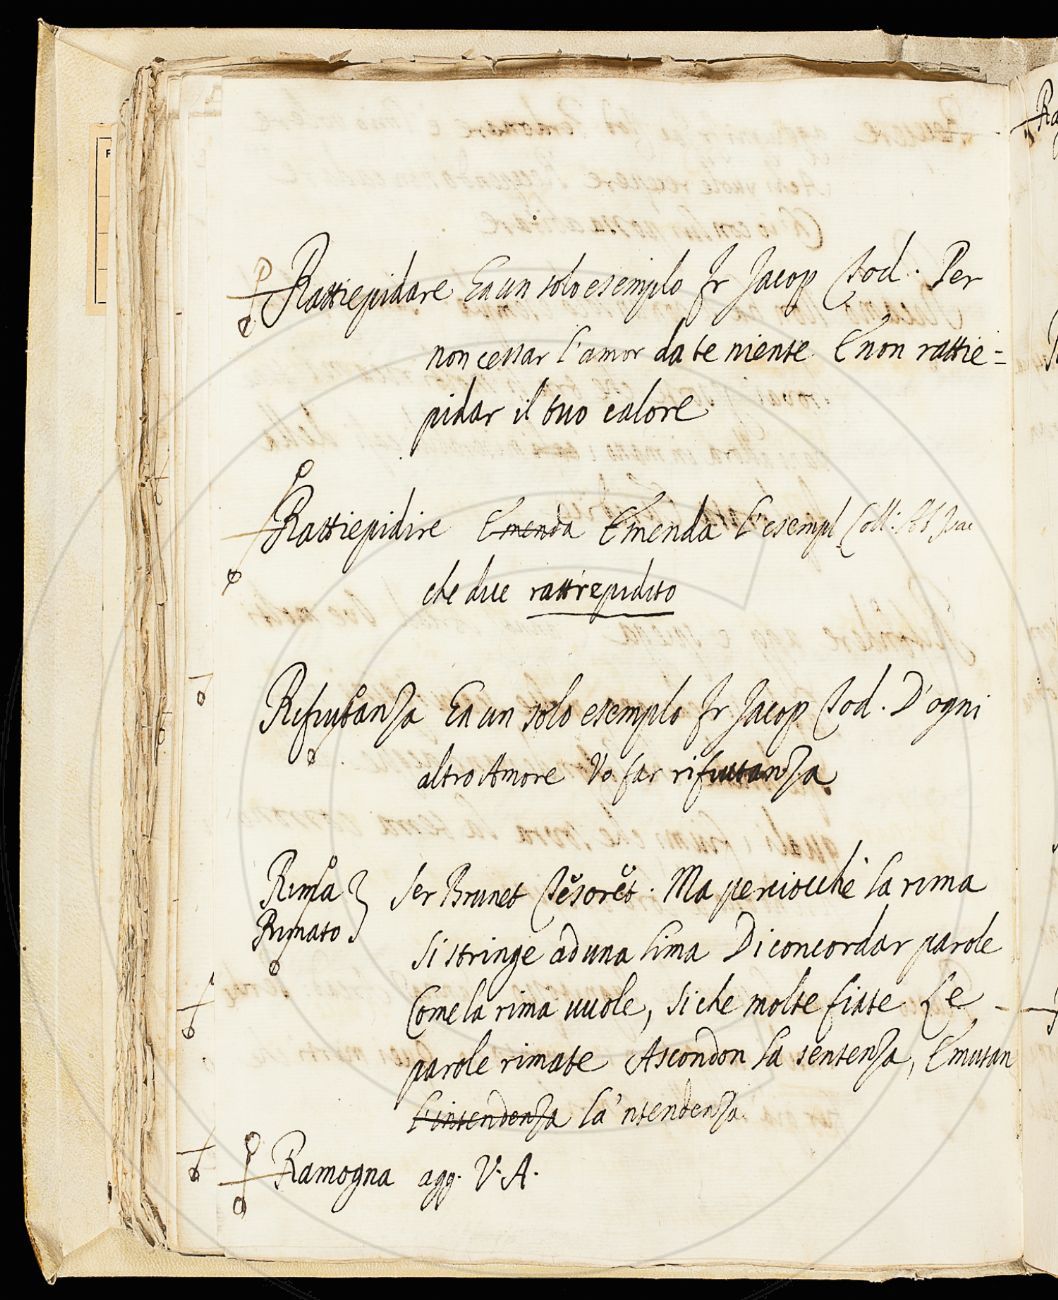 Rattiepidare Ea un solo esemplo Fr Jacop Tod. Per
non cessar l'amor da te niente. E non rattie=
pidar il tuo calore.
Rattiepidire Emenda Emenda l'esempl Coll. SS
che dice rattrepidito
Rifiutanza Ea un solo esemplo Fr Jacop Tod. D'ogni
altro Amore Vo far rifiutanza
Rima
Rimato
Ser Brunet Tesoret. Ma perciocchè la rima
Si stringe ad una lima Di concordar parole
Come la rima vuole, Siche molte fiate Le
parole rimate Ascondon la sentenza, E mutan
l'intendenza la'ntendenza.
Ramogna agg. V. A.